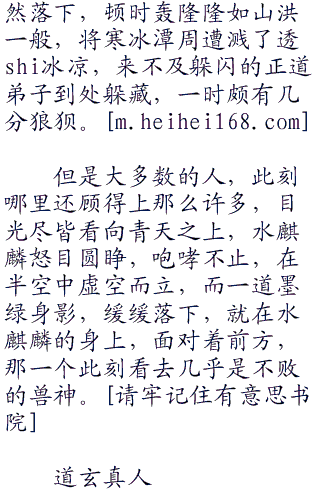 然落下，顿时轰隆隆如山洪
一般，将寒冰潭周遭溅了透
shi冰凉，来不及躲闪的正道
弟子到处躲藏，一时颇有几
分狼狈。[m.heihei168.com]
但是大多数的人，此刻
哪里还顾得上那么许多，目
光尽皆看向青天之上，水麒
麟怒目圆睁，咆哮不止，在
半空中虚空而立，而一道墨
绿身影，缓缓落下，就在水
麒麟的身上，面对着前方，
那一个此刻看去几乎是不败
的兽神。[请牢记住有意思书
院]
道玄真人